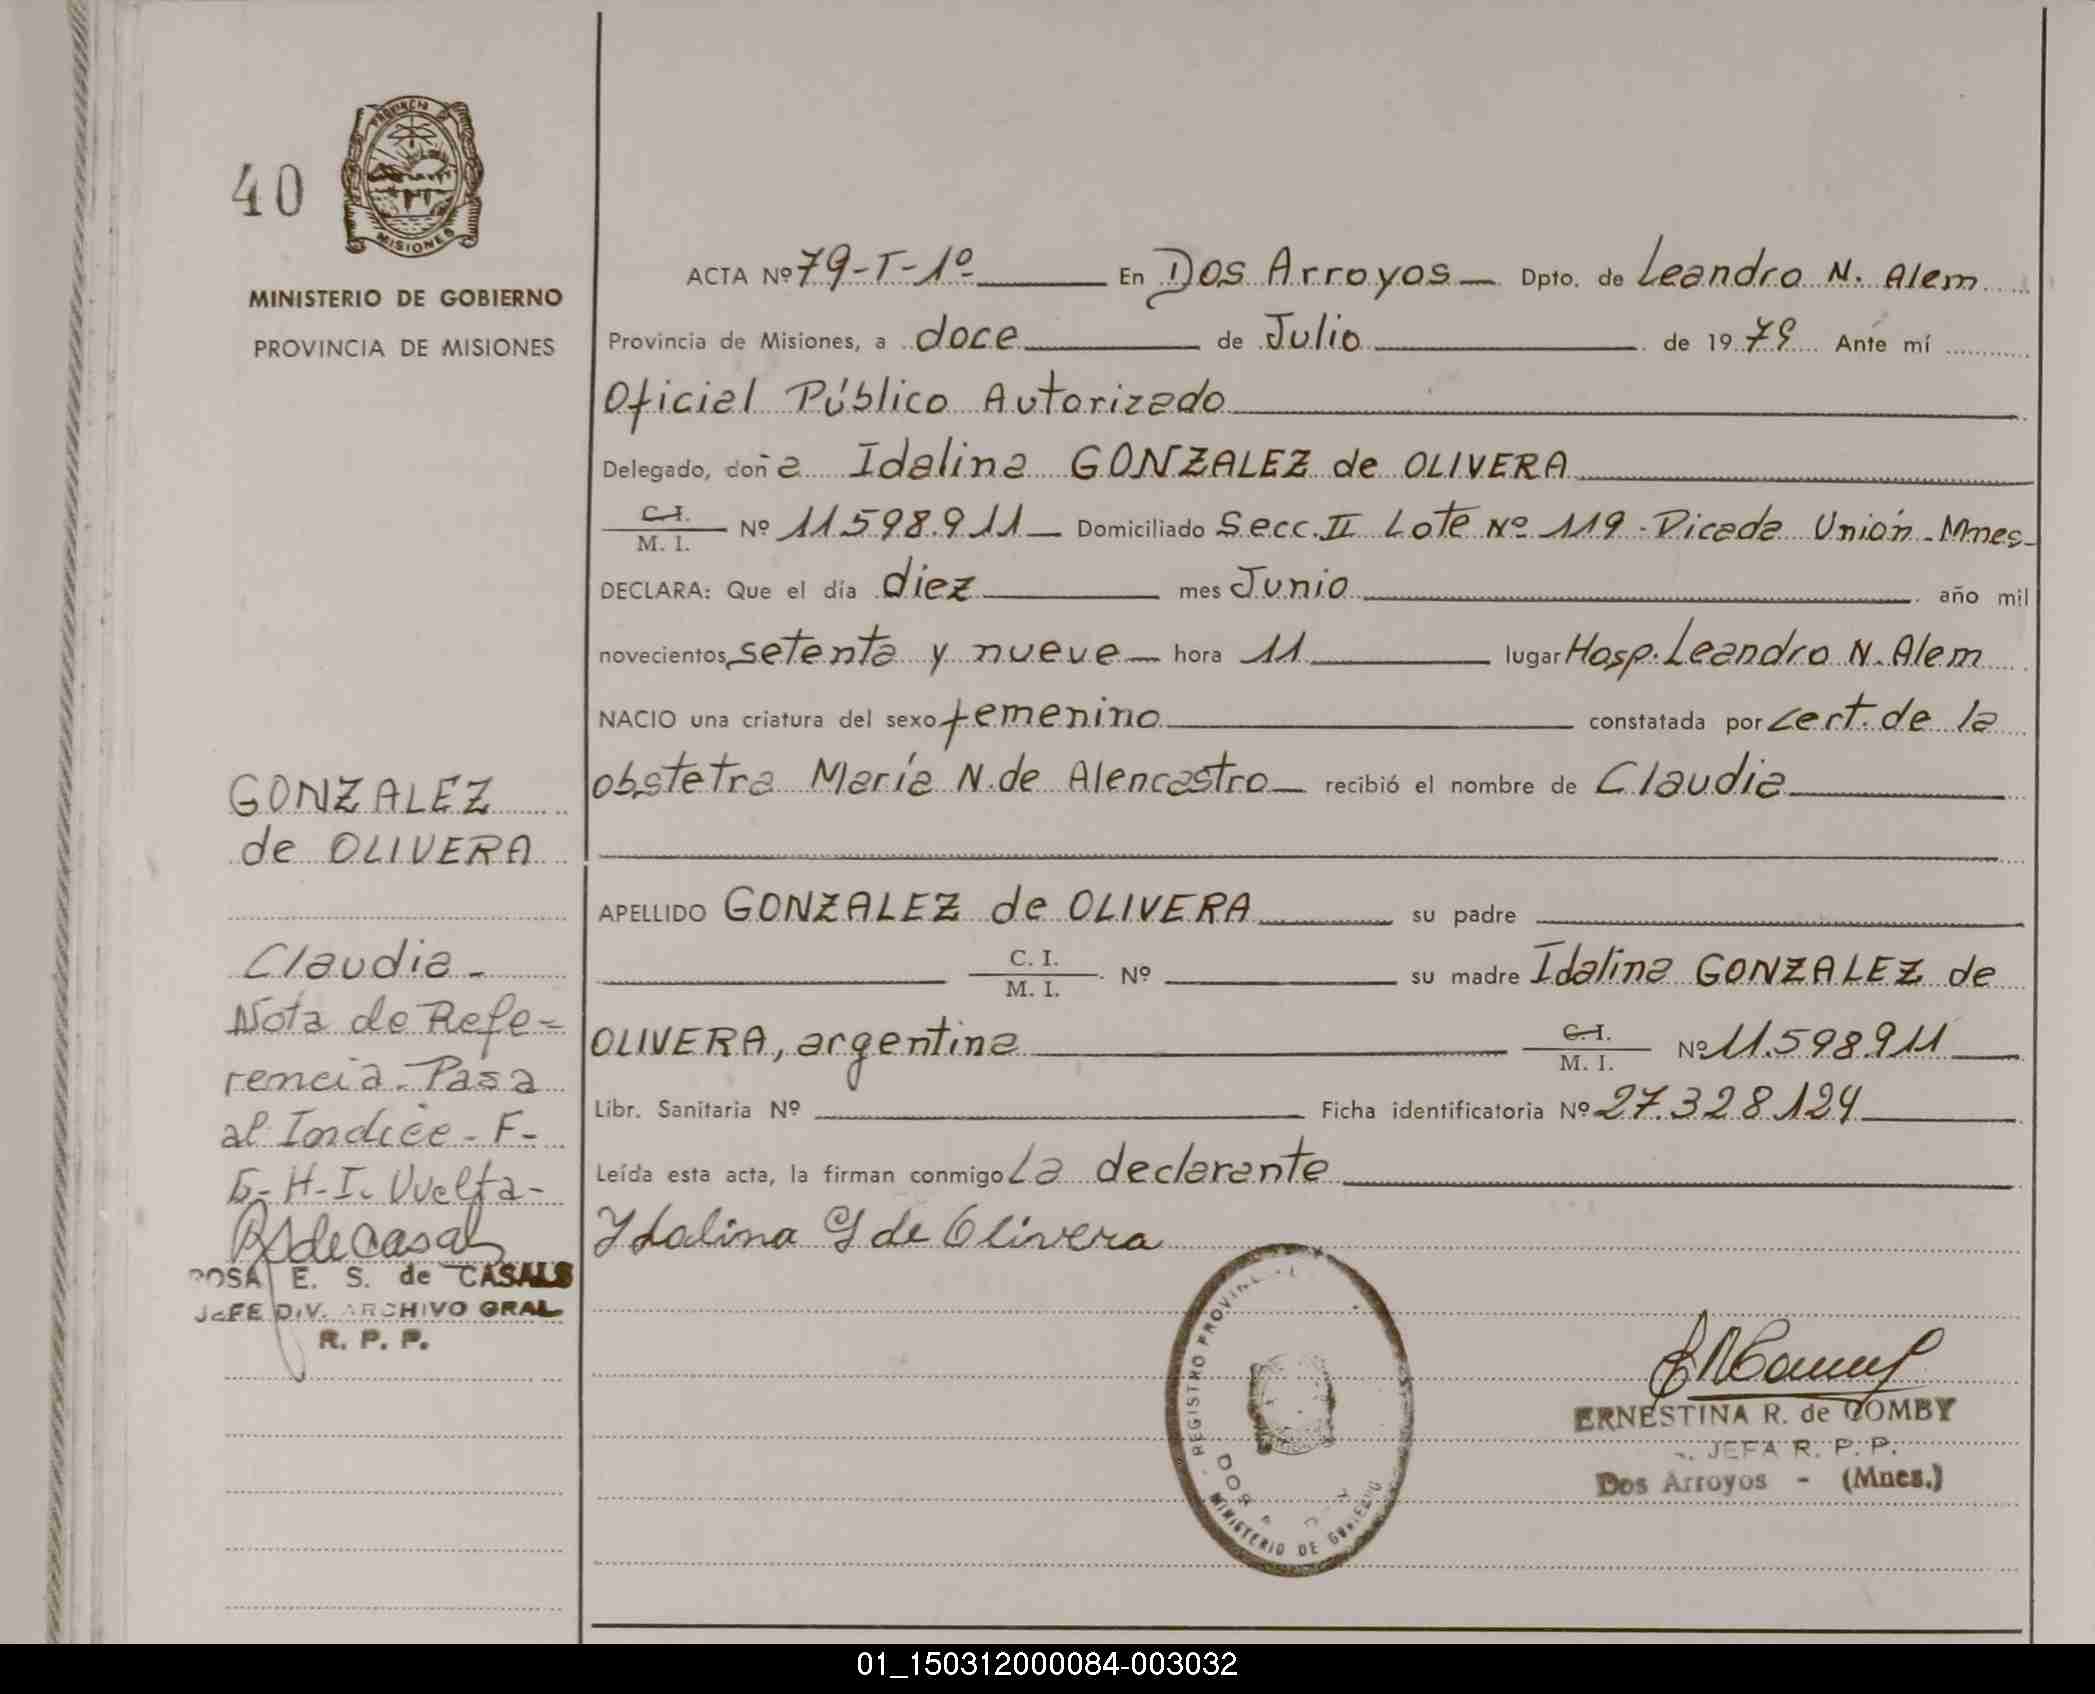 40
PROVINCIA DE
MISIONES
MINISTERIO DE GOBIERNO
PROVINCIA DE MISIONES
ACTA Nº 79-T-1º En Dos Arroyos Dpto. de Leandro N. Alem
Provincia de Misiones, a doce de Julio de 1979 Ante mí
Oficial Público Autorizado
Delegado, doña Idalina GONZALEZ de OLIVERA
C.I.
M. I. Nº 11.598.911 Domiciliado Secc. II Lote Nº 119 - Picada Unión - Mnes-
DECLARA: Que el día diez mes Junio año mil
novecientos setenta y nueve hora 11 lugar Hosp. Leandro N. Alem
NACIO una criatura del sexo femenino constatada por cert. de la
obstetra María N. de Alencastro recibió el nombre de Claudia
APELLIDO GONZALEZ de OLIVERA su padre
C. I.
M. I. Nº su madre Idalina GONZALEZ de
OLIVERA, argentina C.I.
M. I. Nº 11.598.911
Libr. Sanitaria Nº Ficha identificatoria Nº 27.328.124
Leída esta acta, la firman conmigo la declarante
Ydalina G de Olivera
GONZALEZ
de OLIVERA
Claudia -
Nota de Refe=
rencia. Pasa
al Indice - F-
G-H-I. Vuelta-
RSdeCasals
ROSA E. S. de CASALS
JEFE DIV. ARCHIVO GRAL
R. P. P.
REGISTRO PROVINCIAL
DOS
MINISTERIO DE GOBIERNO
ERNESTINA R. de COMBY
JEFA R. P. P.
Dos Arroyos - (Mnes.)
01_150312000084-003032